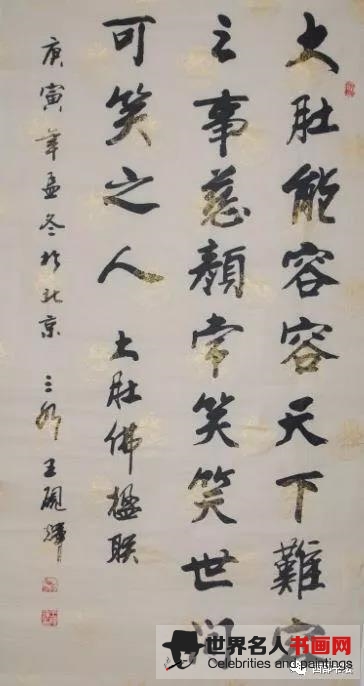 大肚能容容天下難容
之事慈顏常笑笑世間
可笑之人 大肚佛楹联
庚寅年孟冬於北京 王
世界名人书画网
Celebrities and paintings